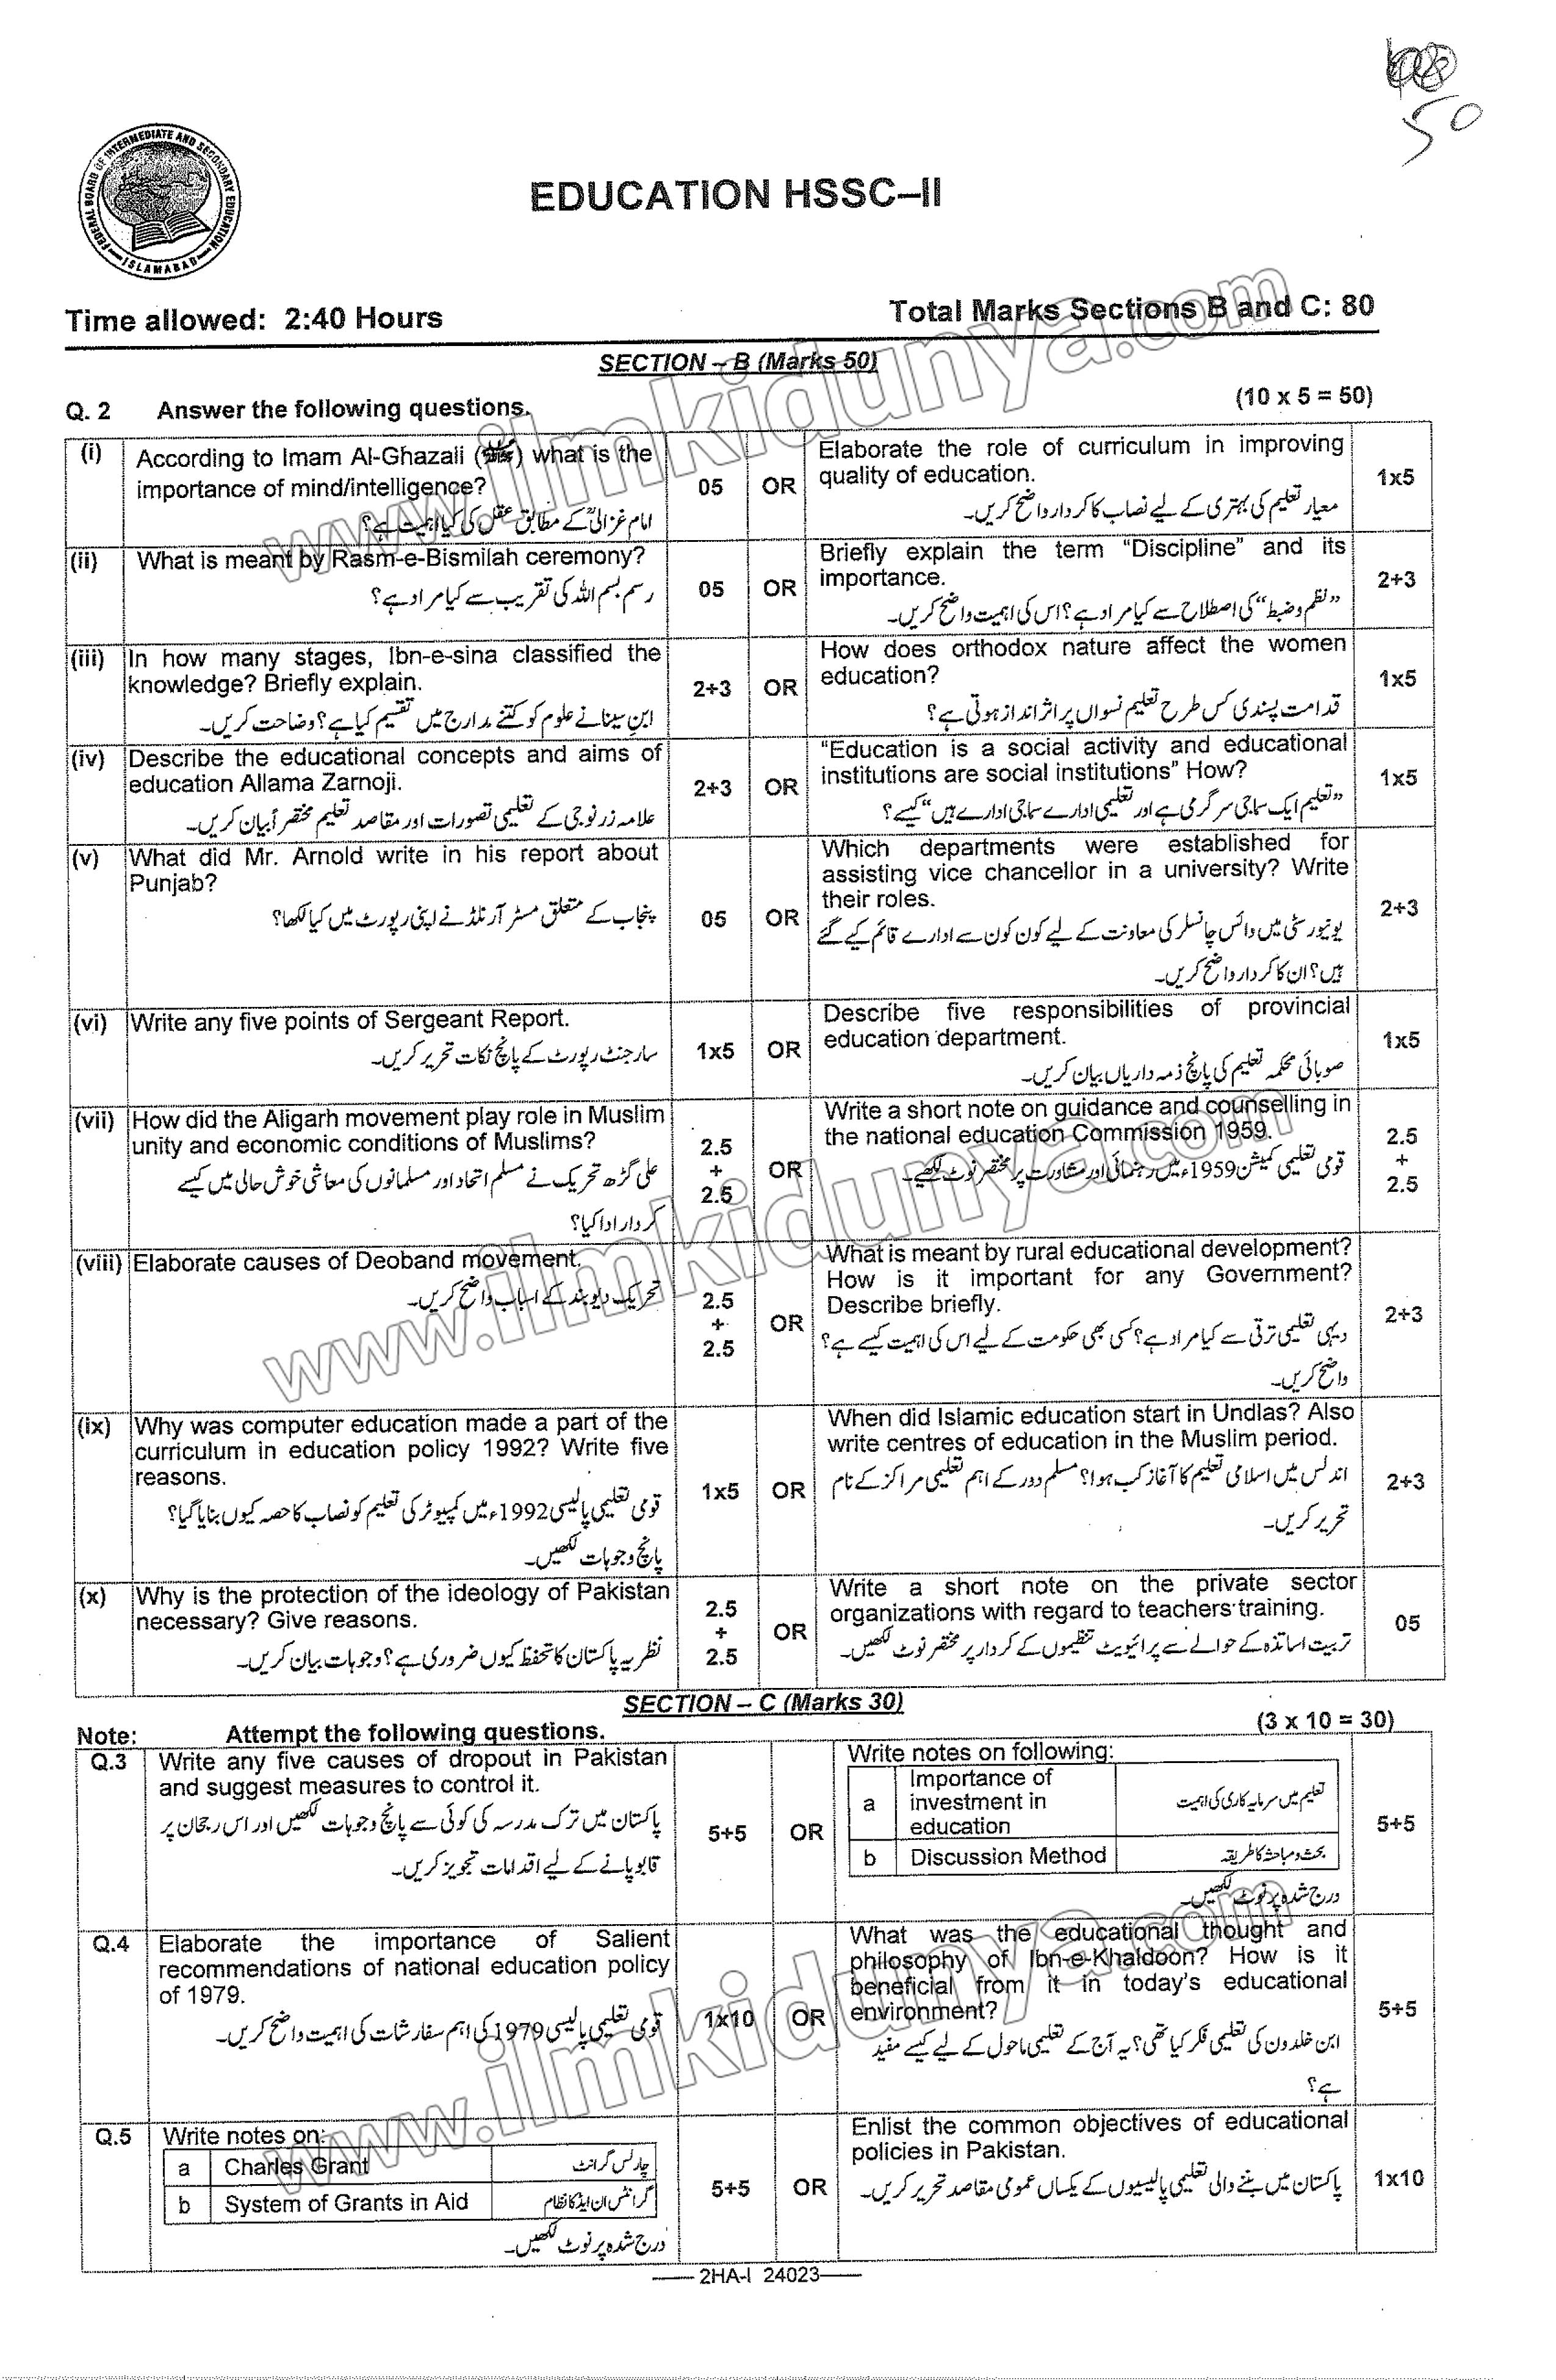 50
FEDERAL BOARD OF INTERMEDIATE AND SECONDARY EDUCATION
ISLAMABAD
EDUCATION HSSC–II
Time allowed: 2:40 Hours
Total Marks Sections B and C: 80
SECTION – B (Marks 50)
Q. 2 Answer the following questions.
(10 x 5 = 50)
(i) According to Imam Al-Ghazali () what is the
importance of mind/intelligence?
امام غزالیؒ کے مطابق عقل کی کیا اہمیت ہے؟
05
OR
Elaborate the role of curriculum in improving
quality of education.
معیار تعلیم کی بہتری کے لیے نصاب کا کردار واضح کریں۔
1x5
(ii) What is meant by Rasm-e-Bismilah ceremony?
رسم بسم اللہ کی تقریب سے کیا مراد ہے؟
05
OR
Briefly explain the term “Discipline” and its
importance.
”نظم و ضبط“ کی اصطلاح سے کیا مراد ہے؟ اس کی اہمیت واضح کریں۔
2+3
(iii) In how many stages, Ibn-e-sina classified the
knowledge? Briefly explain.
ابن سینا نے علوم کو کتنے مدارج میں تقسیم کیا ہے؟ وضاحت کریں۔
2+3
OR
How does orthodox nature affect the women
education?
قدامت پسندی کس طرح تعلیم نسواں پر اثر انداز ہوتی ہے؟
1x5
(iv) Describe the educational concepts and aims of
education Allama Zarnoji.
علامہ زرنوجی کے تعلیمی تصورات اور مقاصد تعلیم مختصراً بیان کریں۔
2+3
OR
“Education is a social activity and educational
institutions are social institutions” How?
”تعلیم ایک سماجی سرگرمی ہے اور تعلیمی ادارے سماجی ادارے ہیں“ کیسے؟
1x5
(v) What did Mr. Arnold write in his report about
Punjab?
پنجاب کے متعلق مسٹر آرنلڈ نے اپنی رپورٹ میں کیا لکھا؟
05
OR
Which departments were established for
assisting vice chancellor in a university? Write
their roles.
یونیورسٹی میں وائس چانسلر کی معاونت کے لیے کون کون سے ادارے قائم کیے گئے
ہیں؟ ان کا کردار واضح کریں۔
2+3
(vi) Write any five points of Sergeant Report.
سارجنٹ رپورٹ کے پانچ نکات تحریر کریں۔
1x5
OR
Describe five responsibilities of provincial
education department.
صوبائی محکمہ تعلیم کی پانچ ذمہ داریاں بیان کریں۔
1x5
(vii) How did the Aligarh movement play role in Muslim
unity and economic conditions of Muslims?
علی گڑھ تحریک نے مسلم اتحاد اور مسلمانوں کی معاشی خوش حالی میں کیسے
کردار ادا کیا؟
2.5
+
2.5
OR
Write a short note on guidance and counselling in
the national education Commission 1959.
قومی تعلیمی کمیشن 1959ء میں رہنمائی اور مشاورت پر مختصر نوٹ لکھیے۔
2.5
+
2.5
(viii) Elaborate causes of Deoband movement.
تحریک دیوبند کے اسباب واضح کریں۔
2.5
+
2.5
OR
What is meant by rural educational development?
How is it important for any Government?
Describe briefly.
دیہی تعلیمی ترقی سے کیا مراد ہے؟ کسی بھی حکومت کے لیے اس کی اہمیت کیسے ہے؟
واضح کریں۔
2+3
(ix) Why was computer education made a part of the
curriculum in education policy 1992? Write five
reasons.
قومی تعلیمی پالیسی 1992ء میں کمپیوٹر کی تعلیم کو نصاب کا حصہ کیوں بنایا گیا؟
پانچ وجوہات لکھیں۔
1x5
OR
When did Islamic education start in Undlas? Also
write centres of education in the Muslim period.
اندلس میں اسلامی تعلیم کا آغاز کب ہوا؟ مسلم دور کے اہم تعلیمی مراکز کے نام
تحریر کریں۔
2+3
(x) Why is the protection of the ideology of Pakistan
necessary? Give reasons.
نظریہ پاکستان کا تحفظ کیوں ضروری ہے؟ وجوہات بیان کریں۔
2.5
+
2.5
OR
Write a short note on the private sector
organizations with regard to teachers training.
تربیت اساتذہ کے حوالے سے پرائیویٹ تنظیموں کے کردار پر مختصر نوٹ لکھیں۔
05
SECTION – C (Marks 30)
Note: Attempt the following questions.
(3 x 10 = 30)
Q.3 Write any five causes of dropout in Pakistan
and suggest measures to control it.
پاکستان میں ترک مدرسہ کی کوئی سے پانچ وجوہات لکھیں اور اس رجحان پر
قابو پانے کے لیے اقدامات تجویز کریں۔
5+5
OR
Write notes on following:
a Importance of
investment in
education
تعلیم میں سرمایہ کاری کی اہمیت
b Discussion Method بحث و مباحثہ کا طریقہ
درج شدہ پر نوٹ لکھیں۔
5+5
Q.4 Elaborate the importance of Salient
recommendations of national education policy
of 1979.
قومی تعلیمی پالیسی 1979 کی اہم سفارشات کی اہمیت واضح کریں۔
1x10
OR
What was the educational thought and
philosophy of Ibn-e-Khaldoon? How is it
beneficial from it in today's educational
environment?
ابن خلدون کی تعلیمی فکر کیا تھی؟ یہ آج کے تعلیمی ماحول کے لیے کیسے مفید
ہے؟
5+5
Q.5 Write notes on:
a Charles Grant چارلس گرانٹ
b System of Grants in Aid گرانٹس ان ایڈ کا نظام
درج شدہ پر نوٹ لکھیں۔
5+5
OR
Enlist the common objectives of educational
policies in Pakistan.
پاکستان میں بننے والی تعلیمی پالیسیوں کے یکساں عمومی مقاصد تحریر کریں۔
1x10
—— 2HA-I 24023 ——
www.ilmkidunya.com
www.ilmkidunya.com
www.ilmkidunya.com